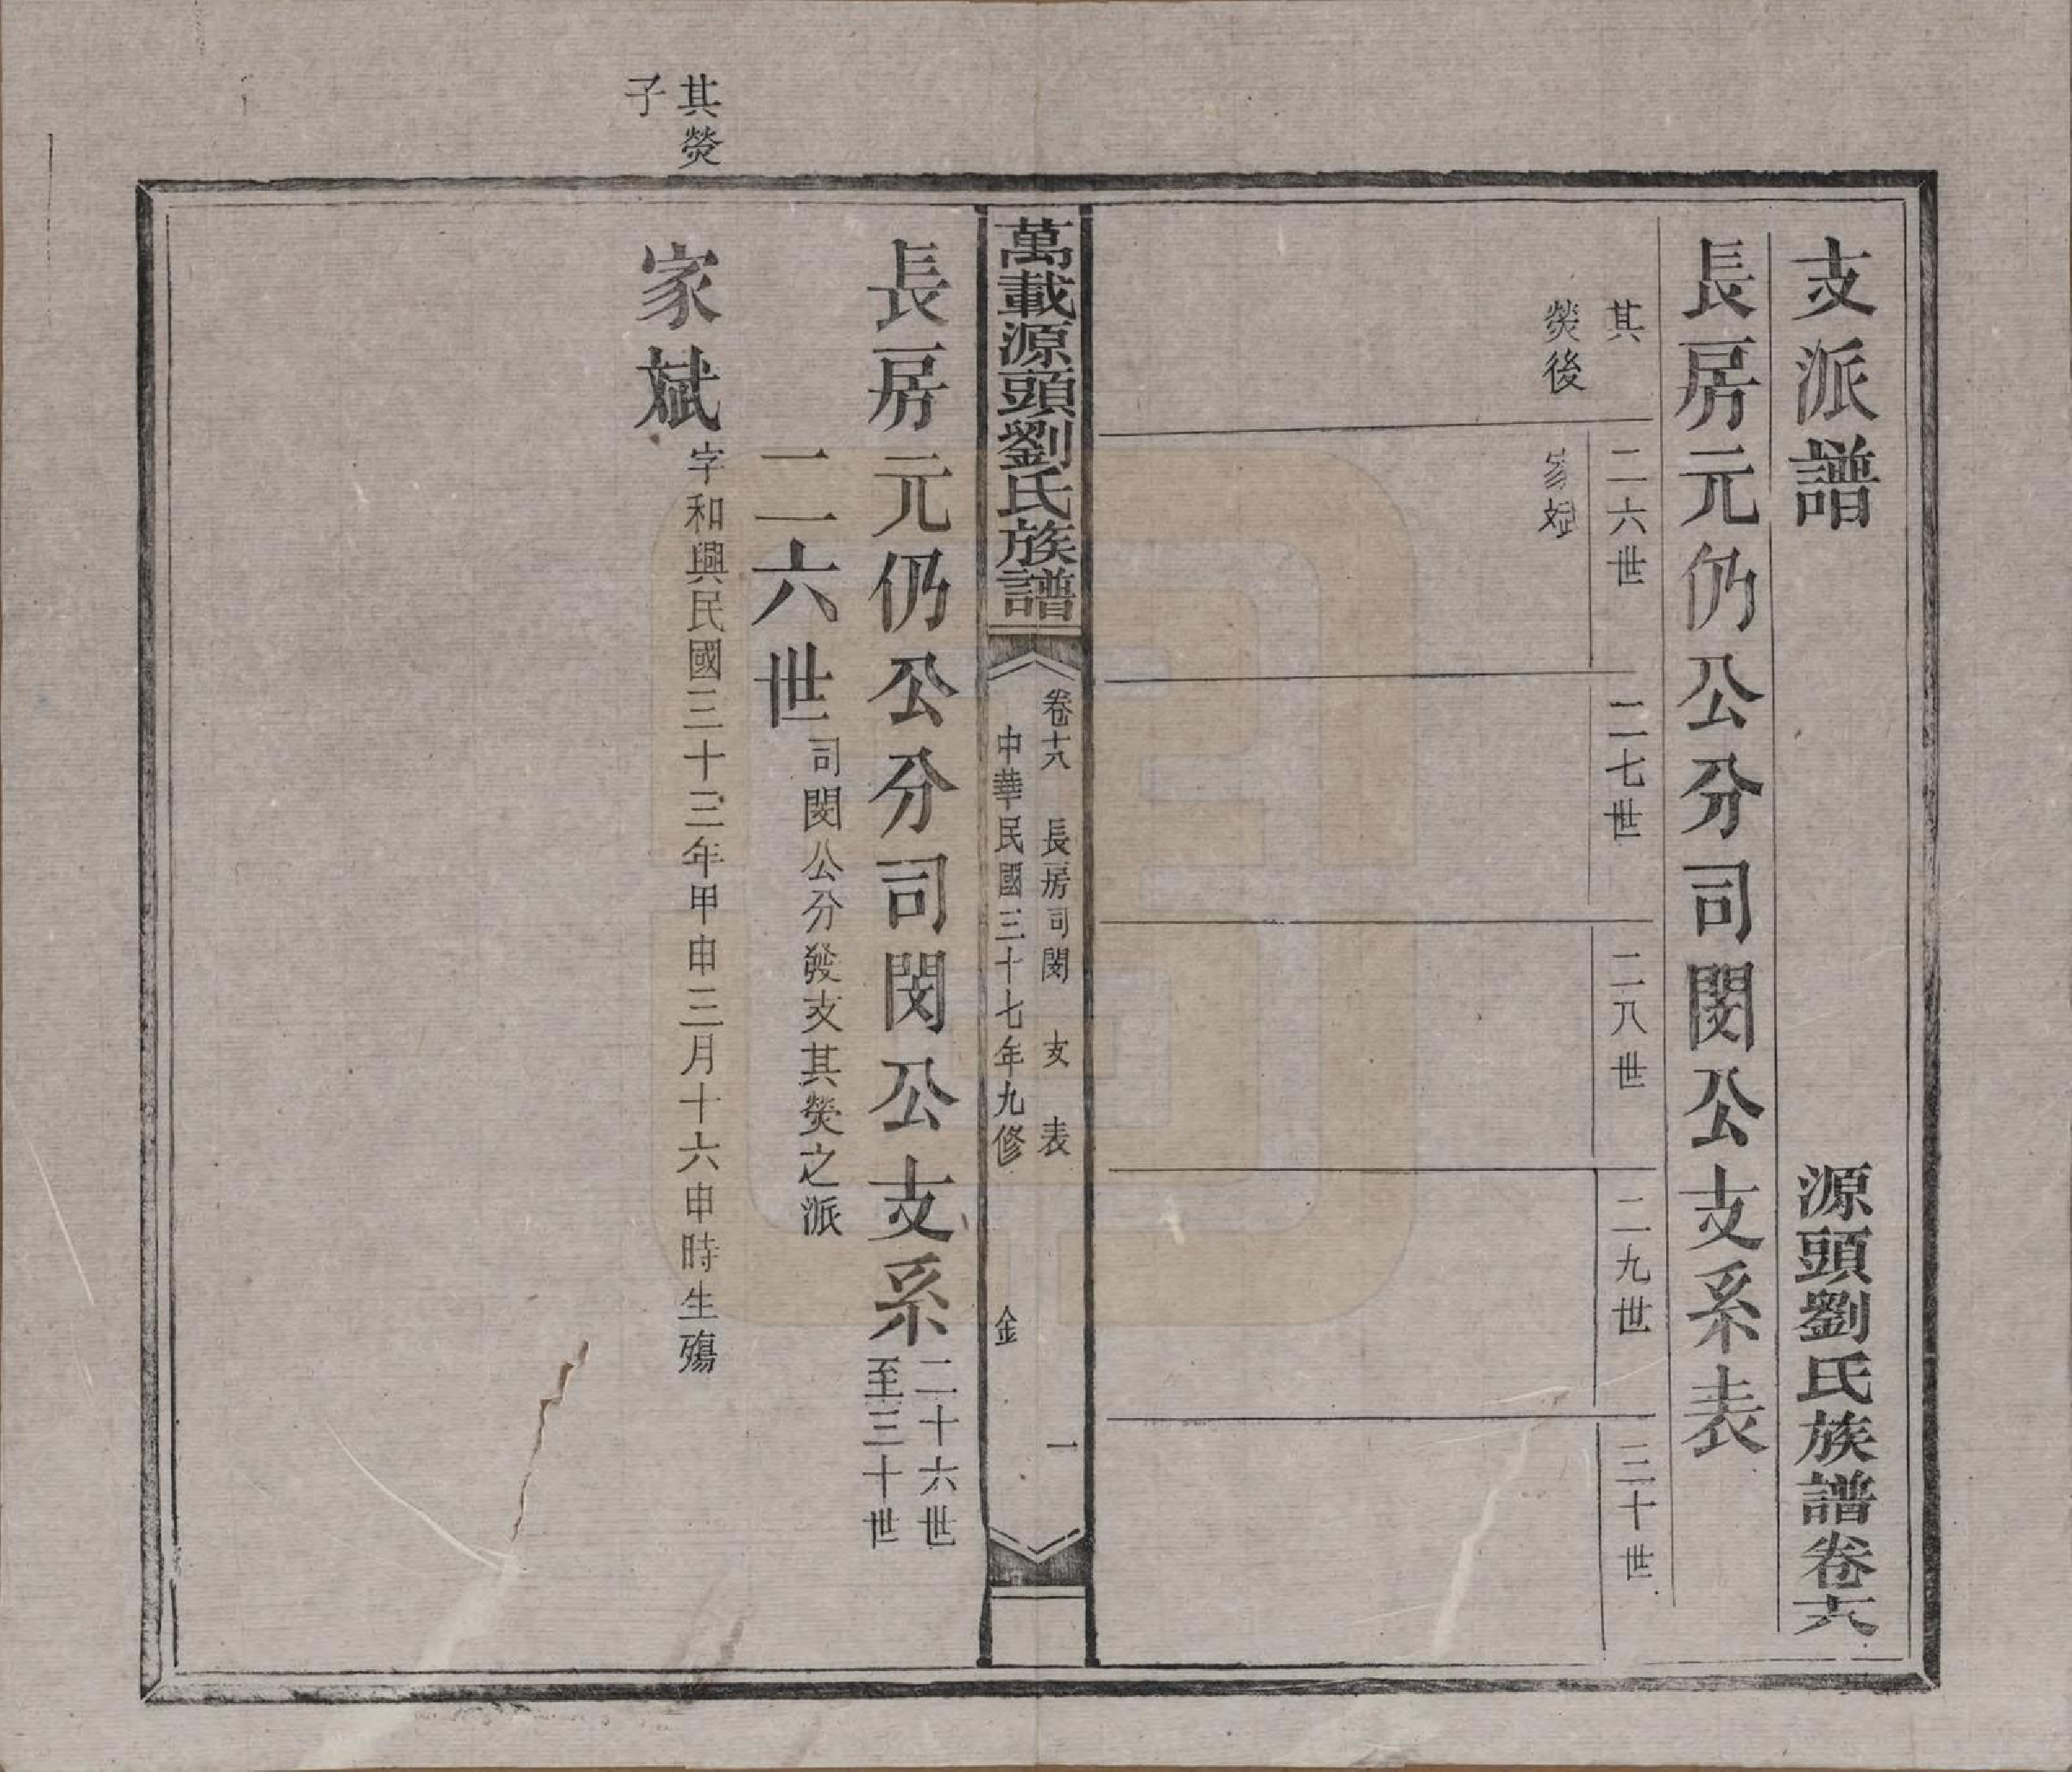 支派譜
源頭劉氏族譜卷六
長房元仍公分司閔公支系表
其
熒後
二六世
家斌
二七世
二八世
二九世
三十世
萬載源頭劉氏族譜
卷十六 長房司閔 支 表 一
中華民國三十七年九修 金
長房元仍公分司閔公支系
二十六世
至三十世
二六世
司閔公分發支其熒之派
其熒
子
家斌
字和興民國三十三年甲申三月十六申時生殤